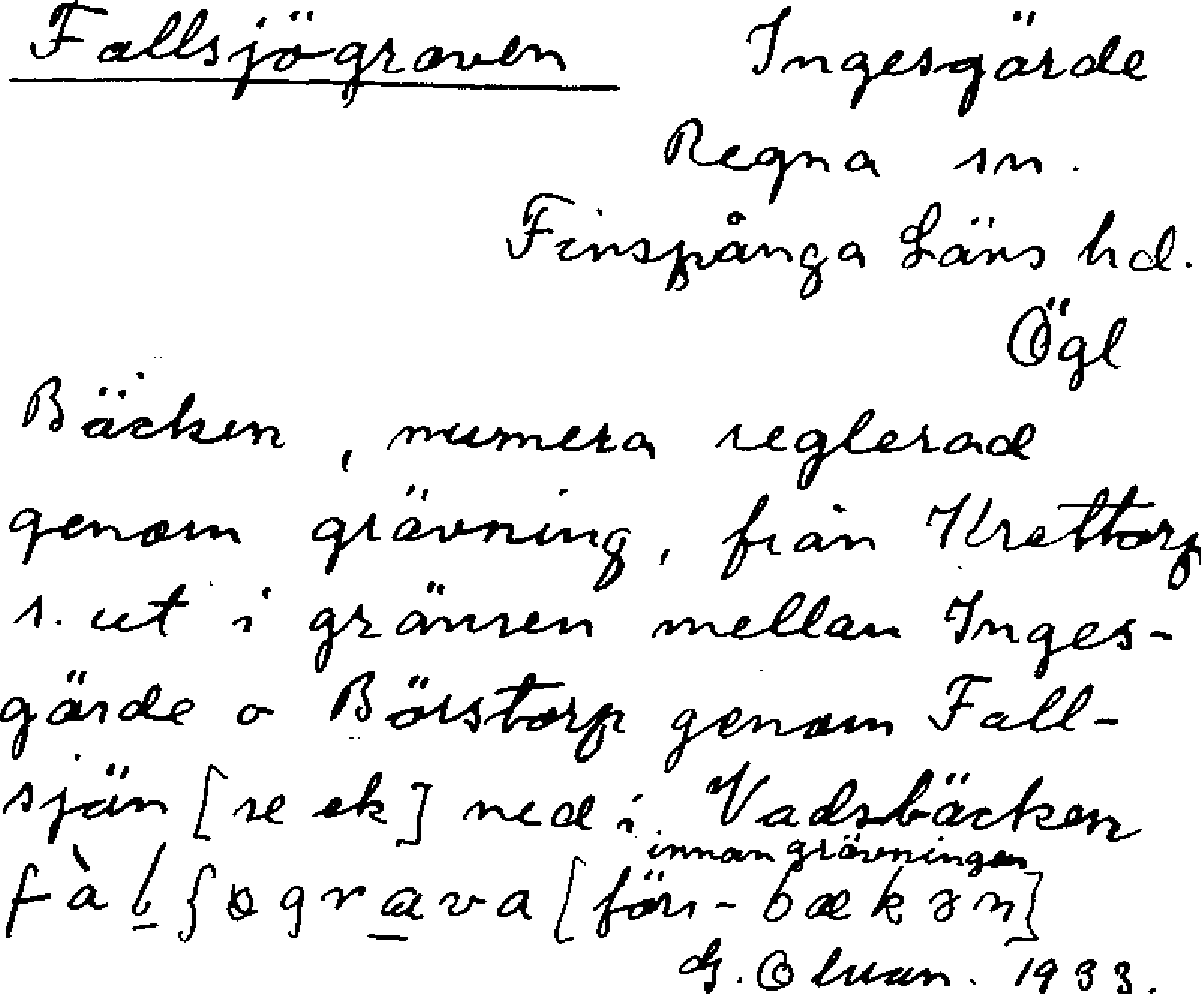 Fallsjögraven Ingesgärde
Regna sn.
Finspånga Läns hd.
Ögl
Bäcken, numera reglerad
genom grävning, från Krettorp
s. ut i gränsen mellan Inges-
gärde o Börstorp genom Fall-
sjön [se ek] ned i Vadsbäcken
innan grävningen
[förr - bækən]
G. 1933.